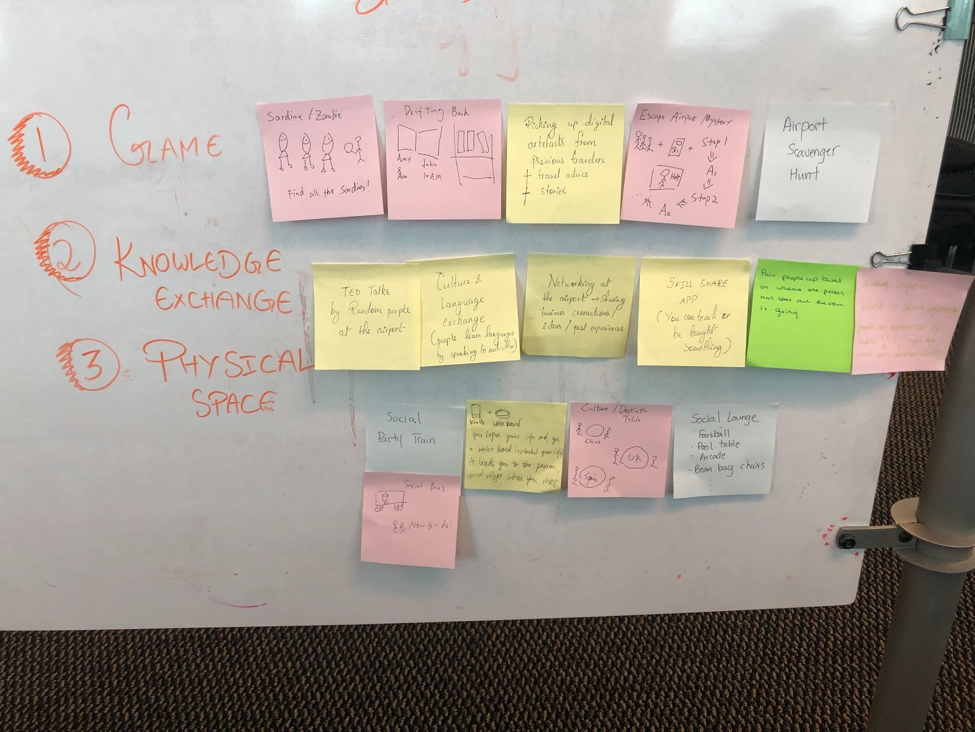 1 GAME
Sardine/Zombie
Find all the Sardines!
Drifting Book
Amy
John
10 AM
Picking up digital
artefacts from
previous travelers
travel advice
stories
Escape Airport Mystery
+ + Step 1
A1
Step 2
A2
Airport
Scavenger
Hunt
2 KNOWLEDGE
EXCHANGE
TED Talks
by Random people
at the airport
Culture &
Language
exchange
(people learn languages
by speaking to each other)
Networking at
the airport → sharing
business connections/
ideas / past experiences
SKILL SHARE
APP
(You can teach or
be taught
something)
Pair people up based
on where one person
has been and the other
is going
3 PHYSICAL
SPACE
Social
Party Train
Social Bus
New friends!
kiosk + wrist band
you input your info and get
a wrist band
it leads you to the person
and rings when you
Culture /
Table
China
UK
Spain
Social Lounge
· Foosball
· Pool table
· Arcade
· Bean bag chairs